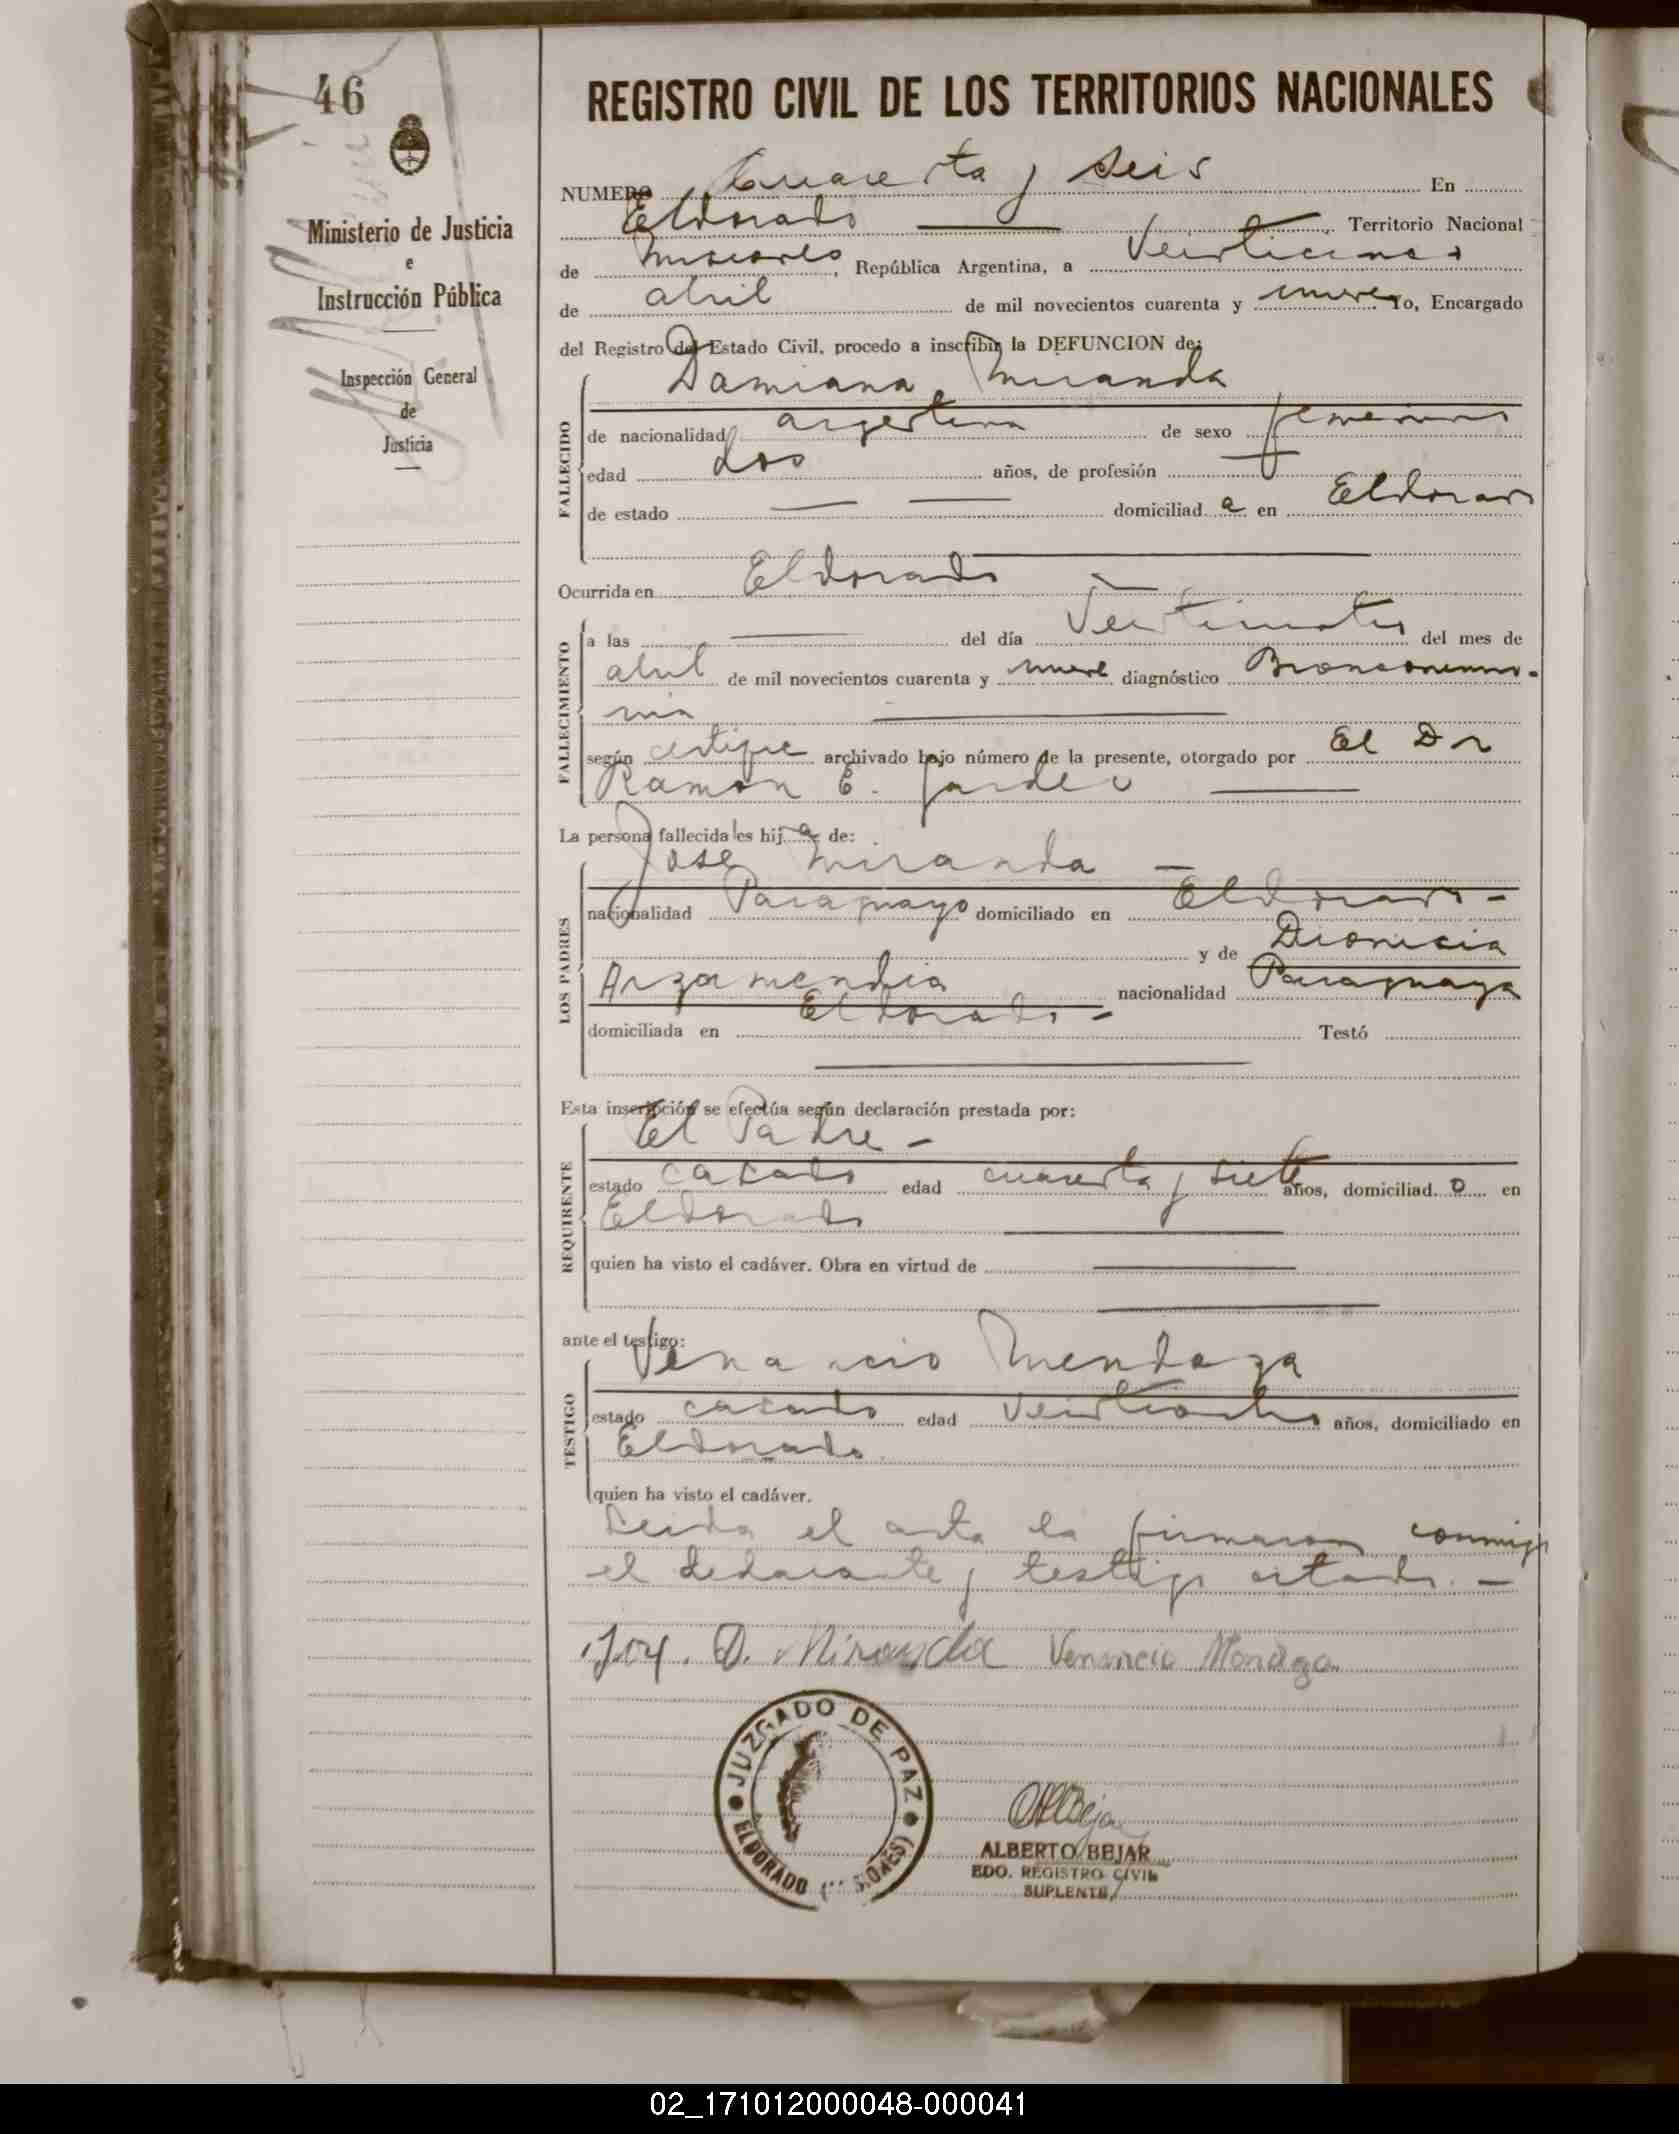 46
Ministerio de Justicia
e
Instrucción Pública
Inspección General
de
Justicia
REGISTRO CIVIL DE LOS TERRITORIOS NACIONALES
NUMERO Cuarenta y seis En
Eldorado Territorio Nacional
de Misiones, República Argentina, a Veinticinco
de abril de mil novecientos cuarenta y nueve Yo, Encargado
del Registro del Estado Civil, procedo a inscribir la DEFUNCION de:
FALLECIDO
Damiana Miranda
de nacionalidad argentina de sexo femenino
edad dos años, de profesión
de estado domiciliad a en Eldorado
Ocurrida en Eldorado
FALLECIMIENTO
a las del día Veinticuatro del mes de
abril de mil novecientos cuarenta y nueve diagnóstico Bronconeumo-
nia
según certifice archivado bajo número de la presente, otorgado por El Dr
Ramon E.
La persona fallecida es hij a de:
LOS PADRES
Jose Miranda
nacionalidad Paraguayo domiciliado en Eldorado -
y de Dionicia
Arzamendia nacionalidad Paraguaya
domiciliada en Eldorado - Testó
Esta inscripción se efectúa según declaración prestada por:
REQUIRENTE
El Padre -
estado casado edad cuarenta y siete años, domiciliad o en
Eldorado
quien ha visto el cadáver. Obra en virtud de
ante el testigo:
TESTIGO
Venancio Mendoza
estado casado edad Veintiocho años, domiciliado en
Eldorado
quien ha visto el cadáver.
Leida el acta la firmaron conmigo
el declarante y testigo citado. -
D. Miranda Venancio Mendoza
JUZGADO DE PAZ
ELDORADO (MISIONES)
ALBERTO BEJAR
EDO. REGISTRO CIVIL
SUPLENTE
02_171012000048-000041